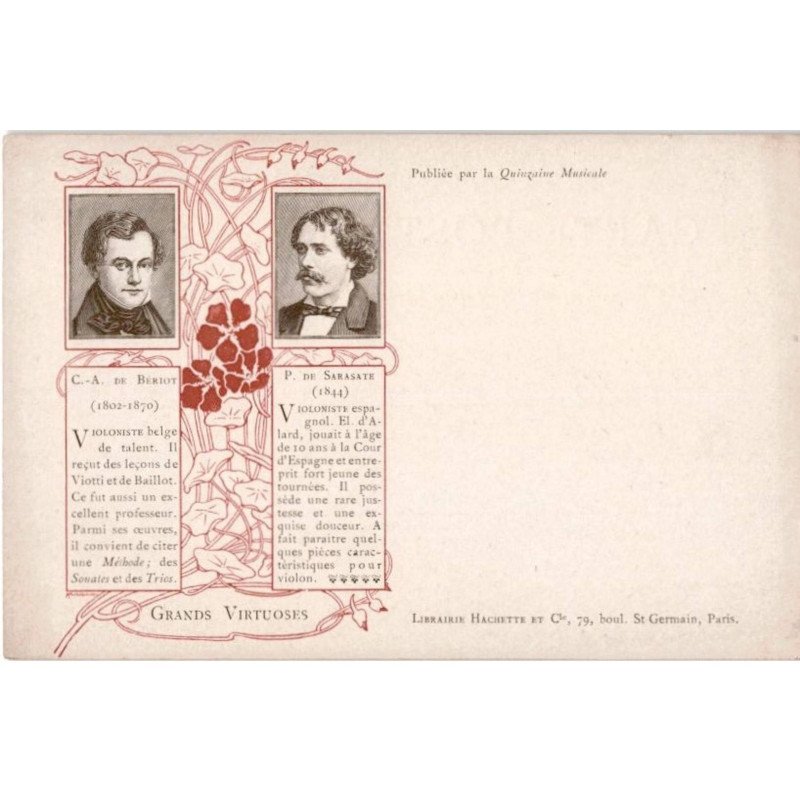 Publiée par la Quinzaine Musicale
C.-A. DE BÉRIOT
(1802-1870)
VIOLONISTE belge
de talent. Il
reçut des leçons de
Viotti et de Baillot.
Ce fut aussi un ex-
cellent professeur.
Parmi ses œuvres,
il convient de citer
une Méthode; des
Sonates et des Trios.
P. DE SARASATE
(1844)
VIOLONISTE espa-
gnol. El. d'A-
lard, jouait à l'âge
de 10 ans à la Cour
d'Espagne et entre-
prit fort jeune des
tournées. Il pos-
sède une rare jus-
tesse et une ex-
quise douceur. A
fait paraître quel-
ques pièces carac-
téristiques pour
violon.
GRANDS VIRTUOSES
LIBRAIRIE HACHETTE ET Cie, 79, boul. St Germain, Paris.